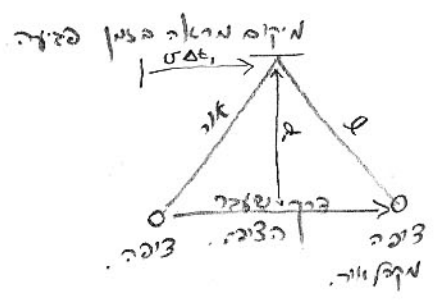 מיקום מראה בזמן פגיעה
vΔt₁
אור
d
דרך שעבר
הציפה.
ציפה.
ציפה
מקבל אור.